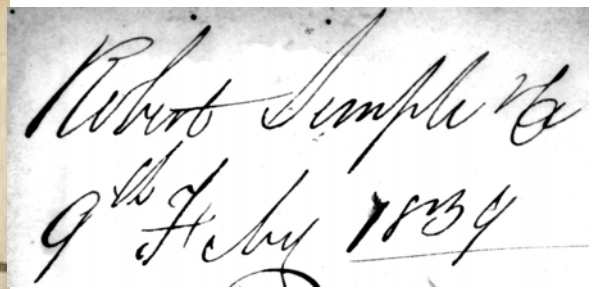 Robert Semple
9th Feby 1839